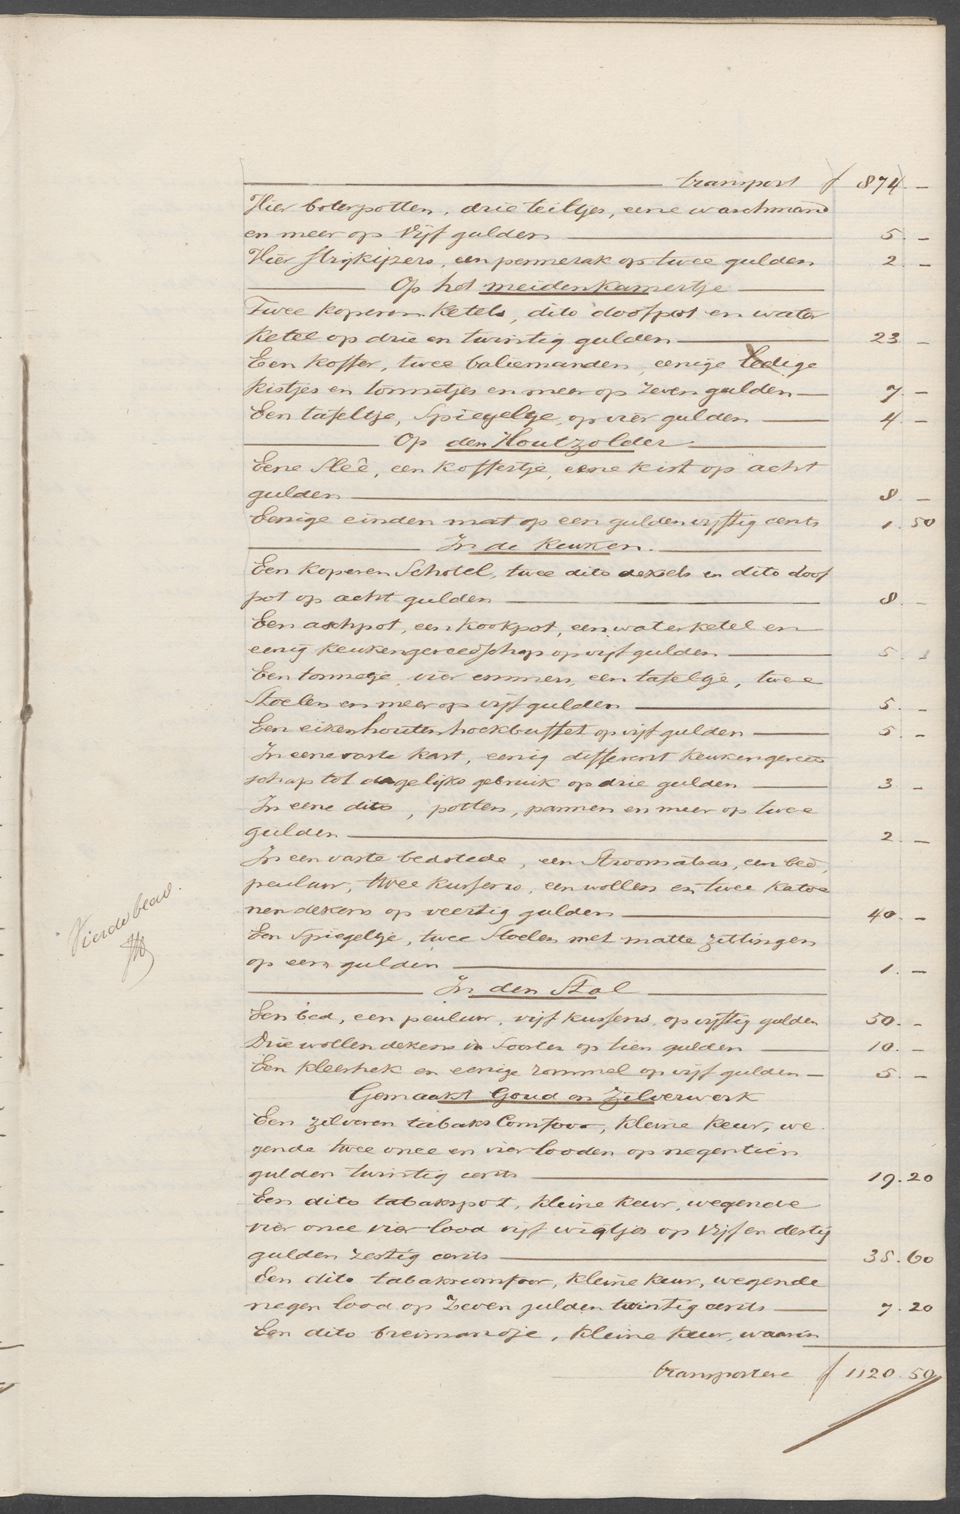 transport f 874 . –
Vier boterpotten, drie teiltjes, eene waschmand
en meer op vijf gulden 5 . –
Vier strijkijzers, een pennerak op twee gulden 2 . –
Op het meidenkamertje
Twee koperen ketels, dito doofpot en water
ketel op drie en twintig gulden 23 –
Een koffer, twee baliemanden, eenige ledige
kistjes en tonnetjes en meer op zeven gulden 7 . –
Een tafeltje, Spiegeltje, op vier gulden 4 . –
Op den Houtzolder
Eene Slee, een koffertje, eene kist op acht
gulden 8 . –
Eenige einden mat op een gulden vijftig cents 1 . 50
In de Keuken.
Een koperen Schotel, twee dito deksels en dito doof
pot op acht gulden 8 . –
Een aschpot, een kookpot, een waterketel en
eenig keukengereedschap op vijf gulden 5 .
Een tonnetje, vier emmers, een tafeltje, twee
Stoelen en meer op vijf gulden 5 . –
Een eikenhouten hoekbuffet op vijf gulden 5 . –
In eene vaste kast, eenig different keukengereed
schap tot dagelijks gebruik op drie gulden 3 . –
In eene dito, potten, pannen en meer op twee
gulden 2 . –
In een vaste bedstede, een Stroomatras, een bed,
peuluw, twee kussens, een wollen en twee katoe
nen dekens op veertig gulden 40 . –
Een Spiegeltje, twee Stoelen met matte zittingen
op een gulden 1 . –
In den Stal
Een bed, een peuluw, vijf kussens, op vijftig gulden 50 . –
Drie wollen dekens in Soorten op tien gulden 10 . –
Een kleerhek en eenige rommel op vijf gulden 5 . –
Gemaakt Goud en Zilverwerk
Een zilveren tabaks Comfoor, kleine keur, we
gende twee once en vier looden op negentien
gulden twintig cents 19 . 20
Een dito tabakspot, kleine keur, wegende
vier once vier lood vijf wigtjes op vijf en dertig
gulden zestig cents 35 . 60
Een dito tabakscomfoor, kleine keur, wegende
negen lood op zeven gulden twintig cents 7 . 20
Een dito breimandje, kleine keur, waarin
transportere f 1120 . 50
Vierde blad.